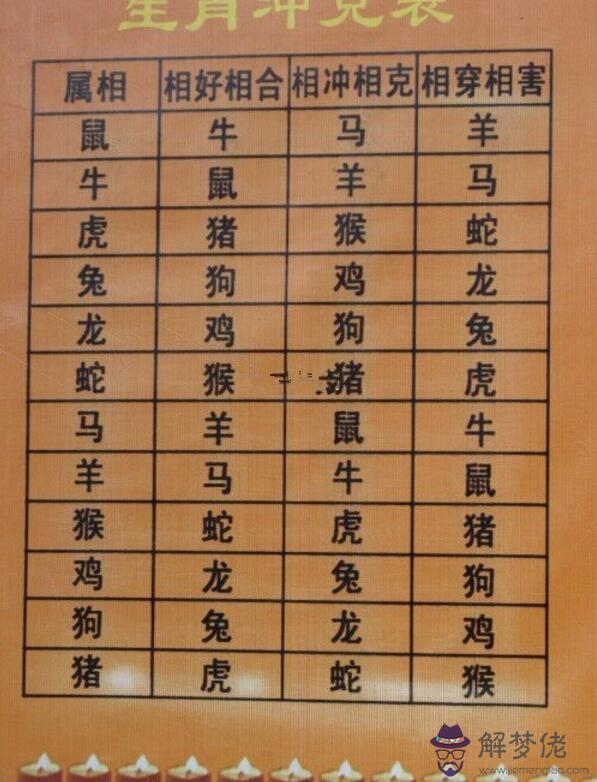 生肖冲克表
属相 相好相合 相冲相克 相穿相害
鼠 牛 马 羊
牛 鼠 羊 马
虎 猪 猴 蛇
兔 狗 鸡 龙
龙 鸡 狗 兔
蛇 猴 猪 虎
马 羊 鼠 牛
羊 马 牛 鼠
猴 蛇 虎 猪
鸡 龙 兔 狗
狗 兔 龙 鸡
猪 虎 蛇 猴
解梦佬
www.jiemenglao.com